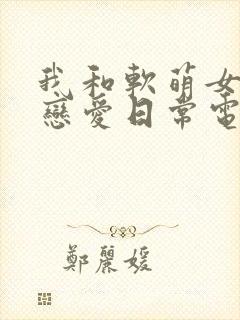 我和軟萌女
戀愛日常電
鄭麗媛